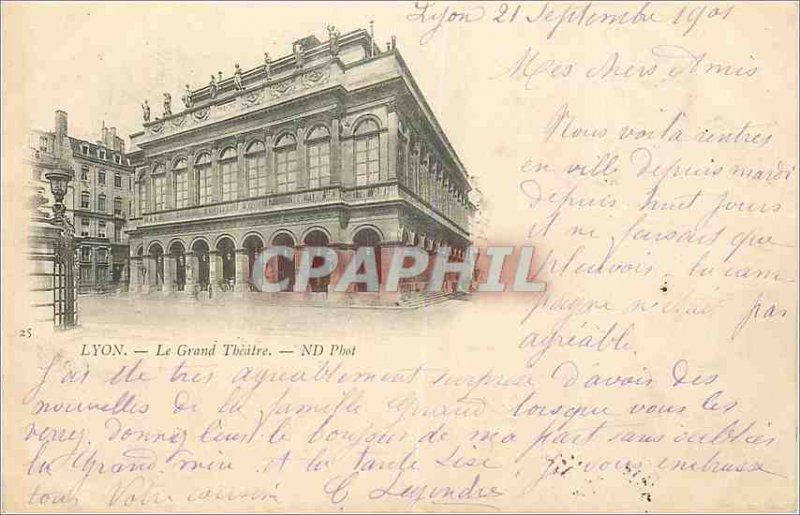 Lyon 21 Septembre 1901
Mes chers Amis
Nous voilà rentres
en ville depuis mardi
depuis huit jours
il ne faisait que
pleuvoir la cam
pagne n'était pas
agréable.
CPAPHIL
25
LYON. — Le Grand Théâtre. — ND Phot
J'ai été très agréablement surprise d'avoir des
nouvelles de la famille Guraud lorsque vous les
verrez. Donnez leur le bonjour de ma part sans oublier
la Grand mère et la tante Lise. Je vous embrasse
tous Votre cousine C. Legendre